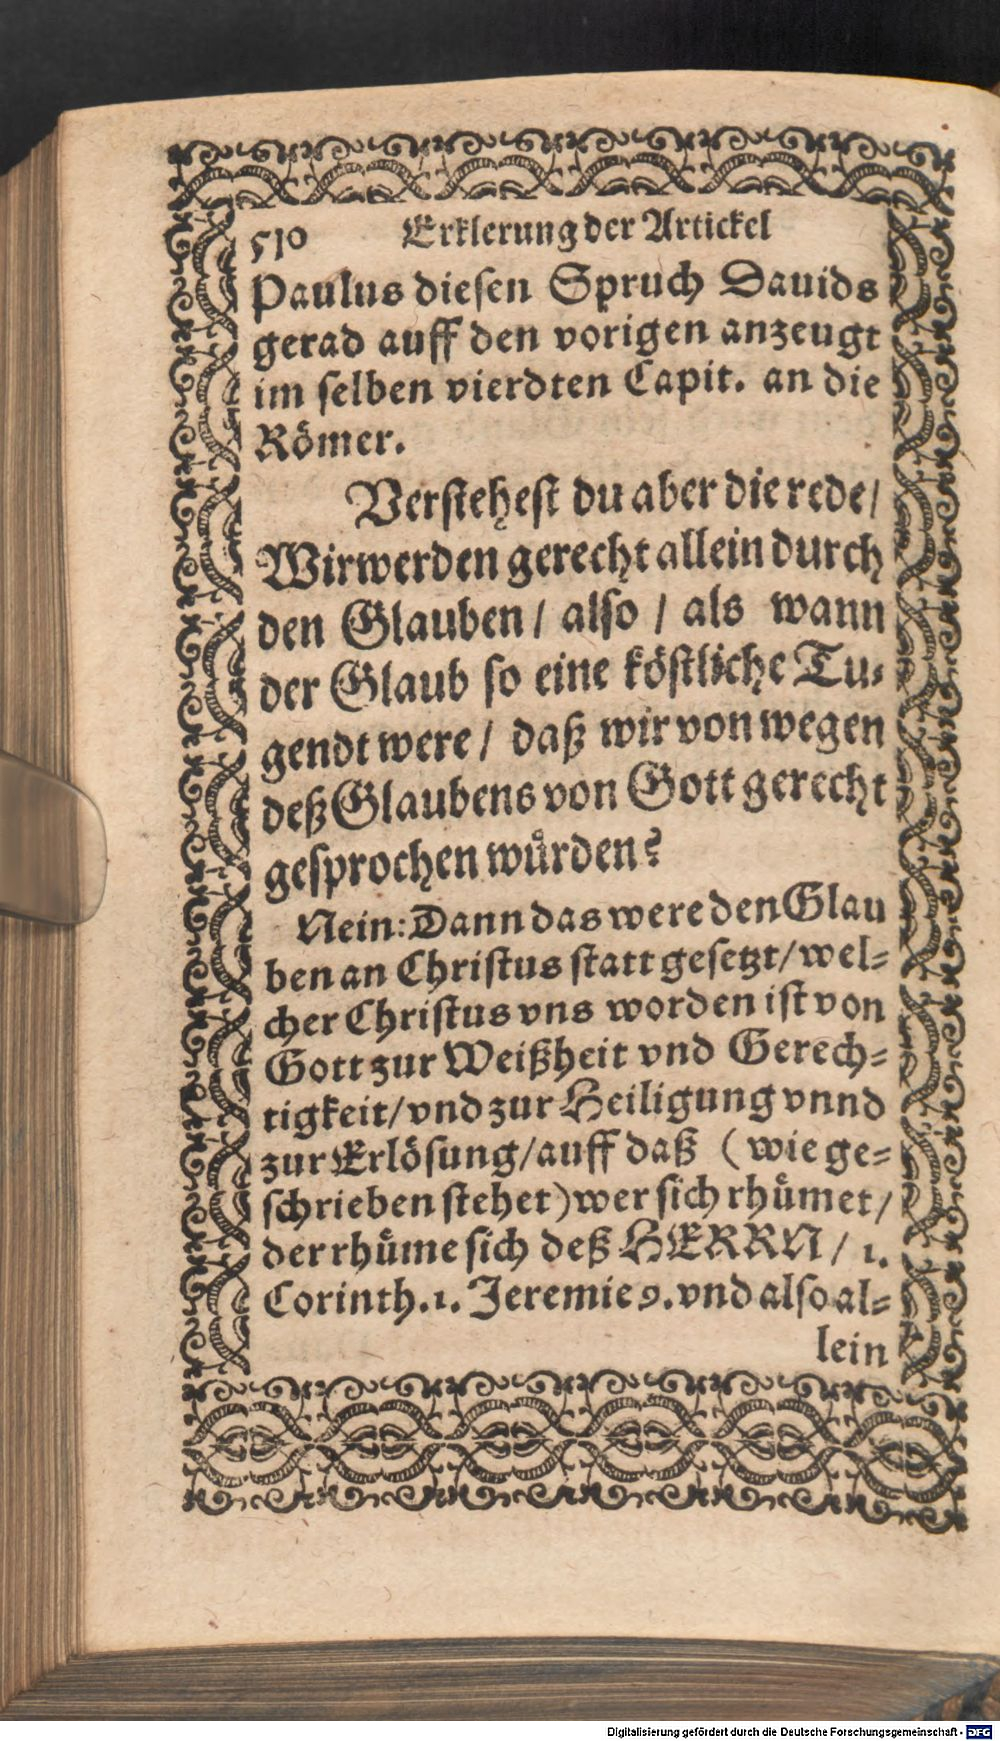 510 Erklerung der Artickel
Paulus diesen Spruch Dauids
gerad auff den vorigen anzeugt
im selben vierdten Capit. an die
Römer.
Verstehest du aber die rede/
Wir werden gerecht allein durch
den Glauben / also / als wann
der Glaub so eine köstliche Tu-
gendt were / daß wir von wegen
deß Glaubens von Gott gerecht
gesprochen wuͤrden?
Nein: Dann das were den Glau
ben an Christus statt gesetzt/ wel-
cher Christus vns worden ist von
Gott zur Weißheit vnd Gerech-
tigkeit/ vnd zur Heiligung vnnd
zur Erlösung/ auff daß ( wie ge-
schrieben stehet) wer sich rhuͤmet/
der rhuͤme sich deß HERRN / 1.
Corinth. 1. Jeremie 9. vnd also al-
lein
Digitalisierung gefördert durch die Deutsche Forschungsgemeinschaft - DFG